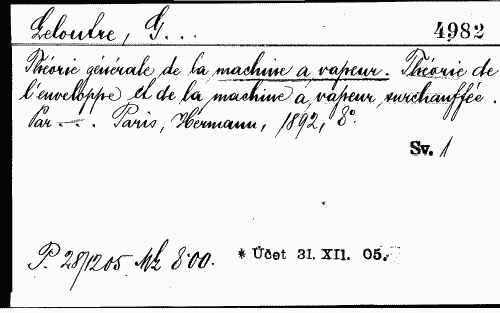 Leloutre, G...
4982
Théorie générale de la machine à vapeur. Théorie de
l'enveloppe et de la machine à vapeur surchauffée.
Par —.. Paris, Hermann, 1892, 8°.
Sv. 1
P. 28/12 05 Mk 8·00. * Účet 31. XII. 05.